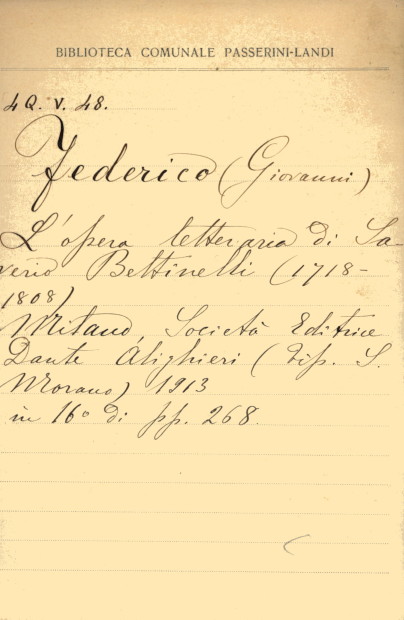 BIBLIOTECA COMUNALE PASSERINI-LANDI
4 Q. V. 48.
Federico (Giovanni)
L'opera letteraria di Sa-
verio Bettinelli (1718-
1808)
Milano, Società Editrice
Dante Alighieri (Tip. S.
Morano) 1913
in 16° di pp. 268.